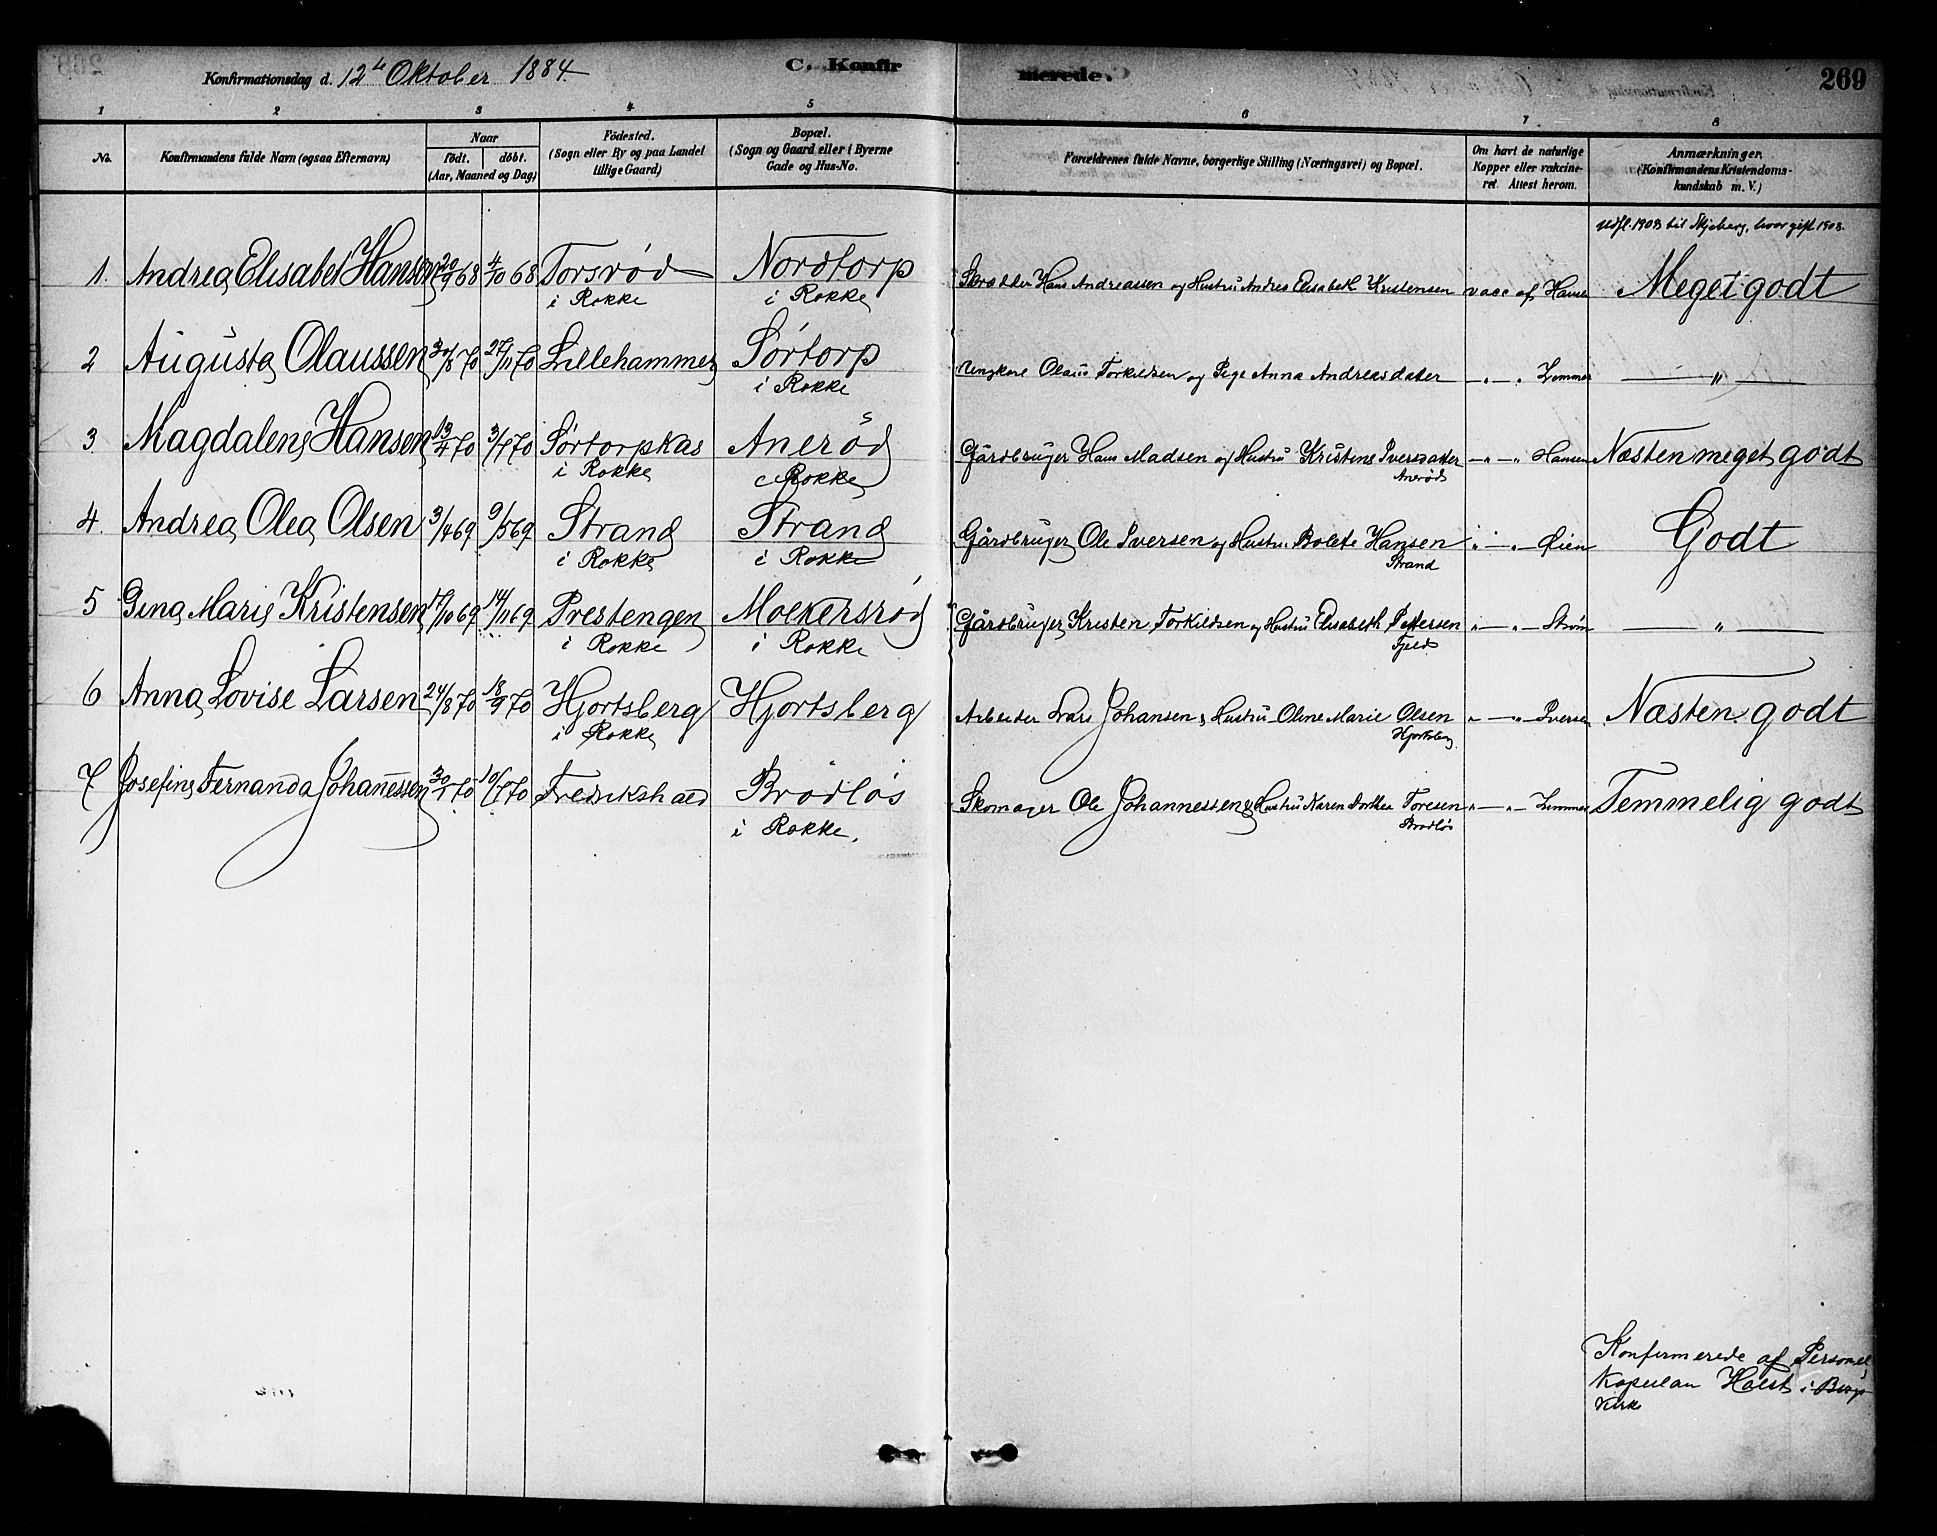 Konfirmationsdag d. 12te Oktober 1884. C. Konfirmerede. 269
1 2 3 4 5 6 7 8
No. Konfirmandens fulde Navn (ogsaa Efternavn) Naar födt. döbt. (Aar, Maaned og Dag) Födested. (Sogn eller By og paa Landet tillige Gaard) Bopæl. (Sogn og Gaard eller i Byerne Gade og Hus-No. Forældrenes fulde Navne, borgerlige Stilling (Næringsvei) og Bopæl. Om havt de naturlige Kopper eller vakcineret. Attest herom. Anmærkninger. (Konfirmandens Kristendomskundskab m. V.)
Udfl. 1903 til Skjeberg, hvor gift 1903.
1. Andrea Elisabet Hansen 20/9 68 4/10 68 Torsröd Nordtorp Skrædder Hans Andreassen og Hustru Andrea Elisabeth Kristensen vacc af Hansen Meget godt
i Rokke i Rokke
2 Augusta Olaussen 30/8 70 27/11 70 Lillehammer Sörtorp Ungkarl Olaus Torkildsen og Pige Anna Andreasdater — " — " Lemmer — " —
i Rokke
3 Magdalene Hansen 13/4 70 3/7 70 Sörtorpkas Aneröd Gårdbruger Hans Madsen og Hustru Kristens Iversdatter — " — " Hansen Næsten meget godt
i Rokke i Rokke Aneröd
4. Andrea Olea Olsen 3/4 69 9/5 69 Strand Strand Gårdbruger Ole Iversen og Hustru Bolete Hansen " — " — Öien Godt
i Rokke i Rokke Strand
5 Gina Marie Kristensen 17/10 69 14/11 69 Prestengen Molkersröd Gårdbruger Kristen Torkildsen og Hustru Elisabeth Pettersen " — " — Ström — " —
i Rokke i Rokke Fjeld
6 Anna Lovise Larsen 24/8 70 18/9 70 Hjortsberg Hjortsberg Arbeider Lars Johansen & Hustru Oline Marie Olsen " — " Iversen Næsten godt
i Rokke Hjortsberg
7 Josefine Fernanda Johanessen 30/1 70 10/7 70 Frederikshald Brödlös Skomager Ole Johannessen & Hustru Karen Dorthea Toresen " — " — Lemmer Temmelig godt
i Rokke. Brödlös
Konfirmerede af Personel
Kapellan Holst i Bergs
Kirke